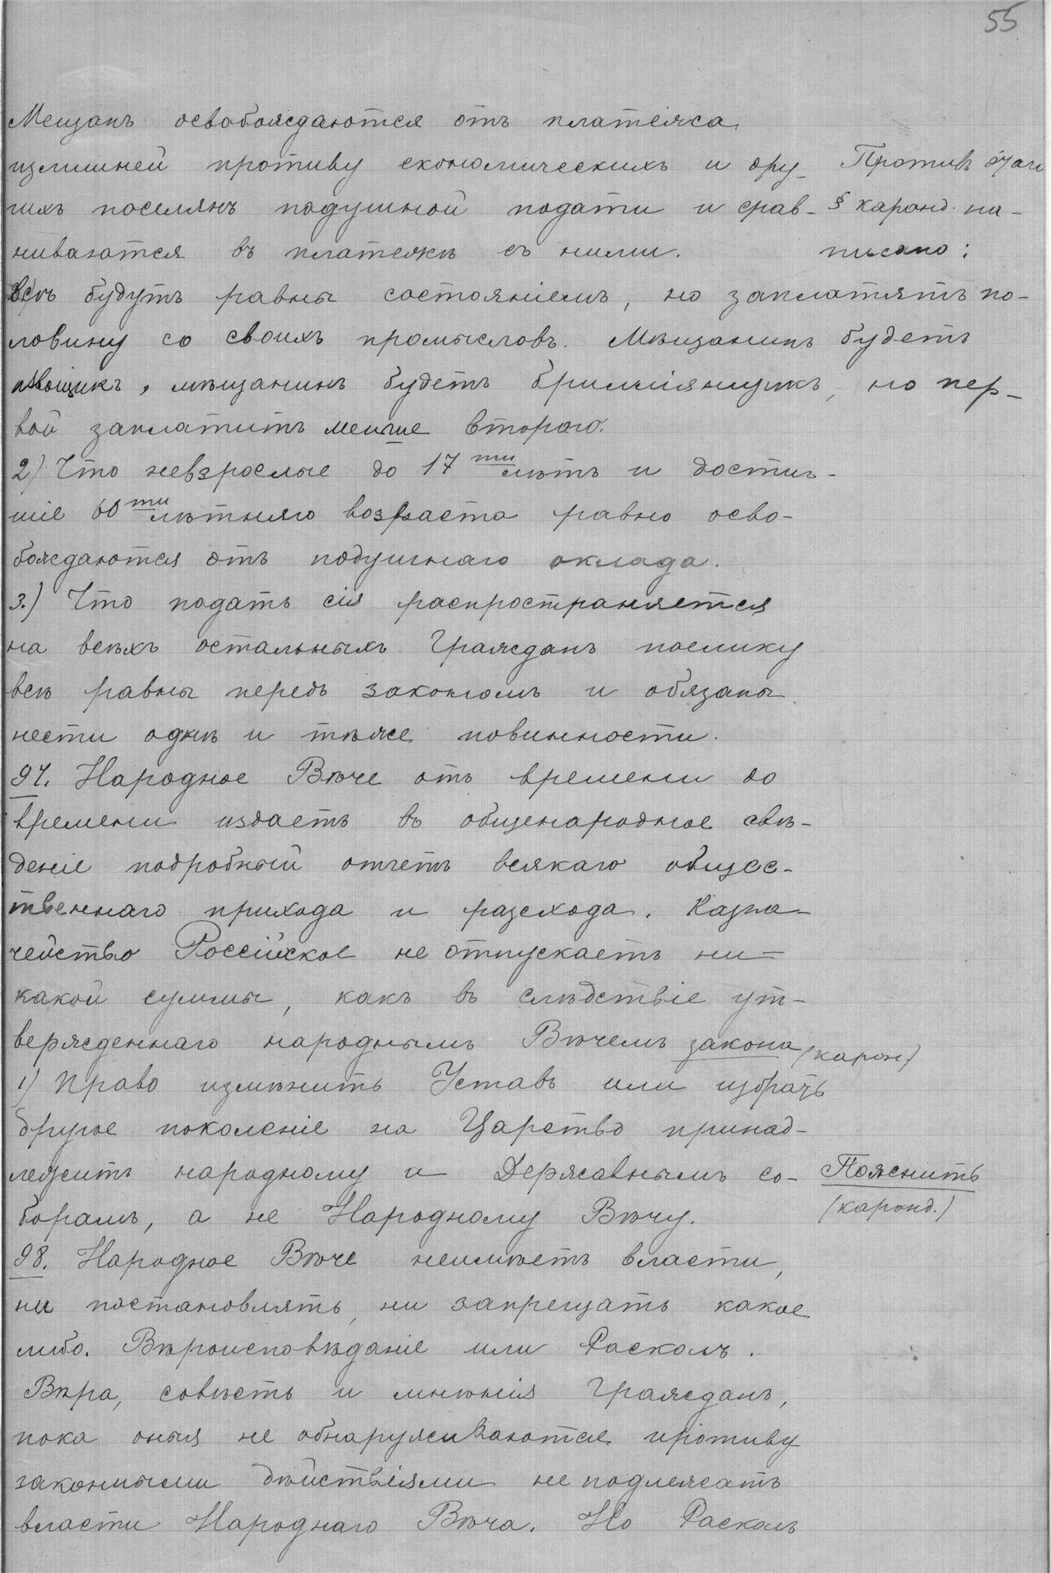 55
Мещанъ освобождаются отъ платежа
излишней противу економическихъ и дру-
гихъ поселянъ подушной подати и срав-
ниваются въ платежѣ съ ними.
Противъ этаго
§ каранд. на-
писано:
Всѣ будутъ равны состояніемъ, но заплатятъ по-
ловину со своихъ промысловъ. Мѣщанинъ будетъ
извощикъ, мѣщанинъ будетъ брилліянщикъ, но пер-
вой заплатитъ менше второго.
2) Что невзрослые до 17ти лѣтъ и достиг-
шіе 60ти лѣтняго возраста равно осво-
бождаются отъ подушнаго оклада.
3.) Что подать сія распространяется
на всѣхъ остальныхъ Гражданъ поелику
всѣ равны передъ закономъ и обязаны
нести однѣ и тѣже повинности.
97. Народное Вѣче отъ времени до
времени издаетъ въ общенародное свѣ-
деніе подробный отчетъ всякаго общес-
твеннаго прихода и разсхода. Казна-
чейство Россійское не отпускаетъ ни-
какой суммы, какъ въ слѣдствіе ут-
вержденнаго народнымъ Вѣчемъ закона (каран)
1) Право измѣнить Уставъ или избрать
другое поколеніе на Царство принад-
лежитъ народному и Державнымъ со-
борамъ, а не Народному Вѣчу.
Пояснить
(каранд.)
98. Народное Вѣче неимѣетъ власти,
ни постановлять, ни запрещать какое
либо. Вѣроисповѣданіе или Расколъ.
Вѣра, совѣсть и мнѣнія Гражданъ,
пока оныя не обнаруживаются противу
законными дѣйствіями не подлежатъ
власти Народнаго Вѣча. Но Расколъ